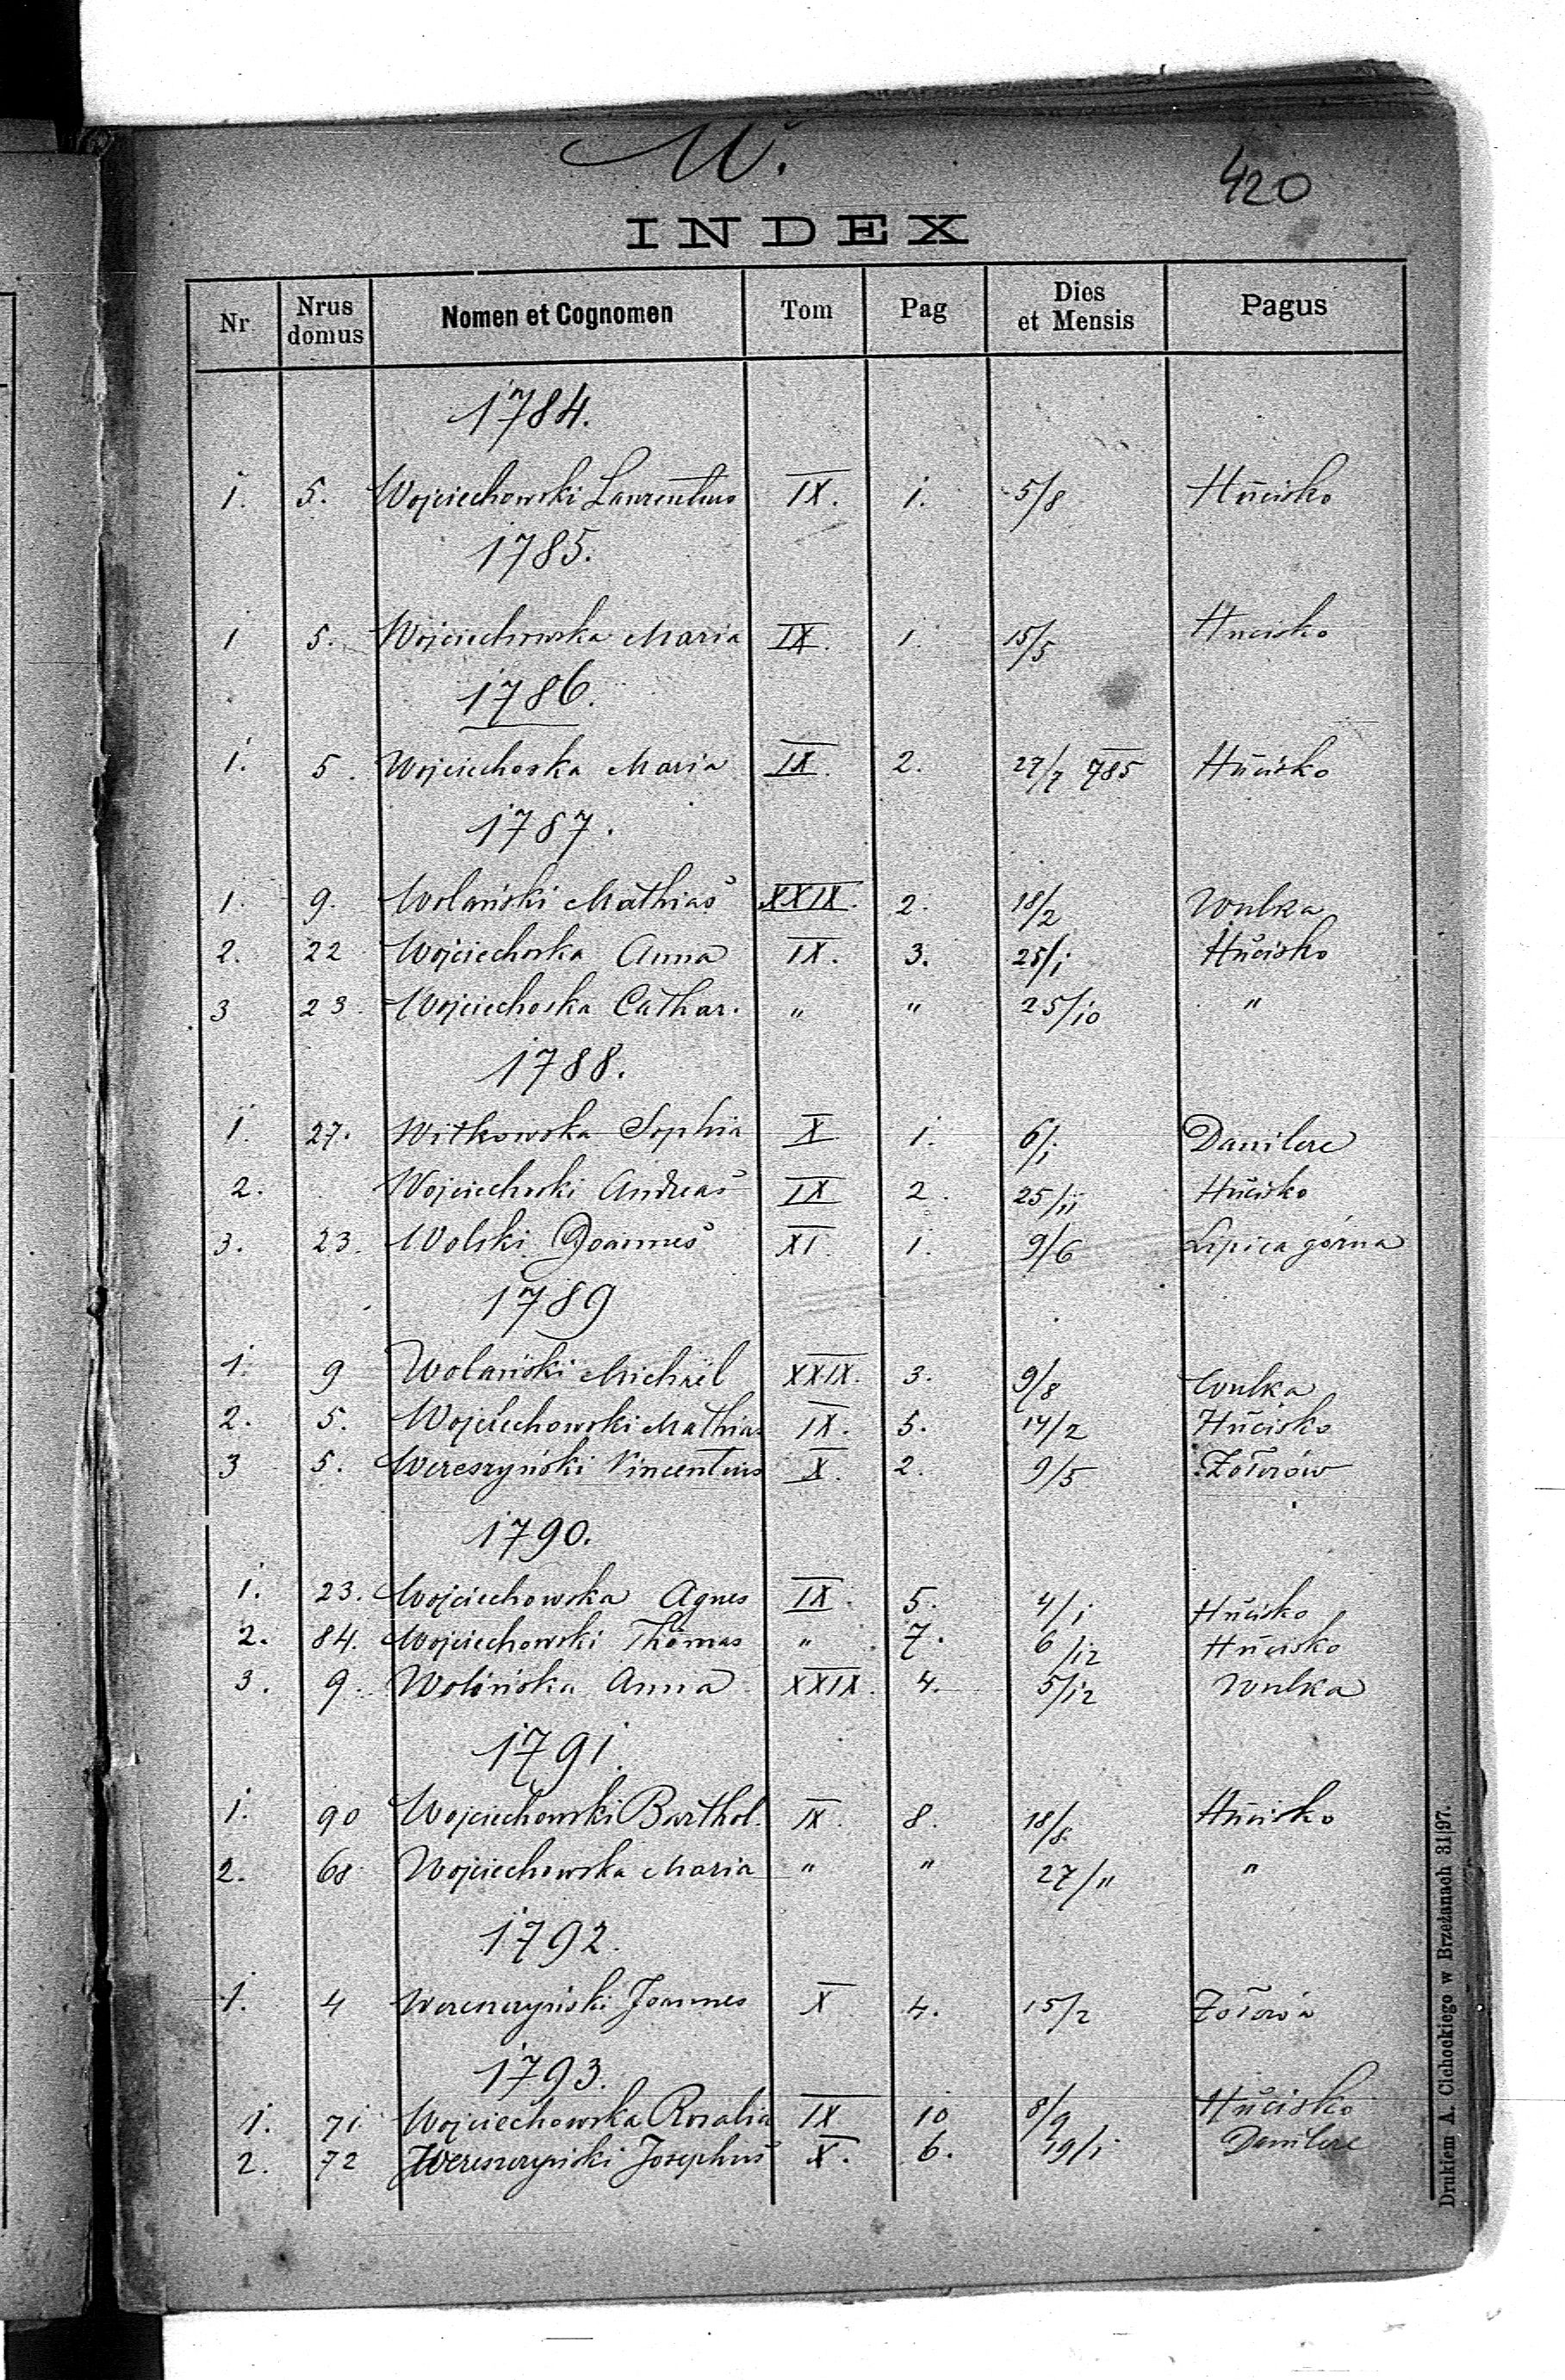 W.
420
INDEX
Nr Nrus domus Nomen et Cognomen Tom Pag Dies et Mensis Pagus
1784.
1. 5. Wojciechowski Laurentius IX. 1. 5/8 Hŭcisko
1785.
1 5. Wojciechowska Maria IX. 1. 15/5 Hucisko
1786.
1. 5. Wojciechoska Maria IX. 2. 27/7 785 Hŭcisko
1787.
1. 9. Wolański Mathias XXIX. 2. 18/2 Wulka
2. 22 Wojciechoska Anna IX. 3. 25/1 Hŭcisko
3 23. Wojciechoska Cathar. " " 25/10 "
1788.
1. 27. Witkowska Sophia X 1. 6/1 Danilcze
2. Wojciechoski Andreas IX 2. 25/11 Hŭcisko
3. 23. Wolski Joannes XI. 1. 9/6 Lipica górna
1789
1. 9 Wolański Michael XXIX. 3. 9/8 Wulka
2. 5. Wojciechowski Mathias IX. 5. 14/2 Hŭcisko
3 5. Wereszyński Vincentius X. 2. 9/5 Zołczów
1790.
1. 23. Wojciechowska Agnes IX. 5. 4/1 Hŭcisko
2. 84. Wojciechowski Thomas " 7. 6/12 Hŭcisko
3. 9. Wolińska Anna XXIX. 4. 5/12 Wulka
1791.
1. 90 Wojciechowski Barthol. IX. 8. 18/8 Hŭcisko
2. 68 Wojciechowska Maria " " 27/" "
1792.
1. 4 Joannes X 4. 15/2
1793.
1. 71 Wojciechowska Rosalia IX 10 8/9 Hŭcisko
2. 72 Wereszczyński Josephus X. 6. 19/1 Danilcze
Drukiem A. Cichockiego w Brzeżanach 31|97.